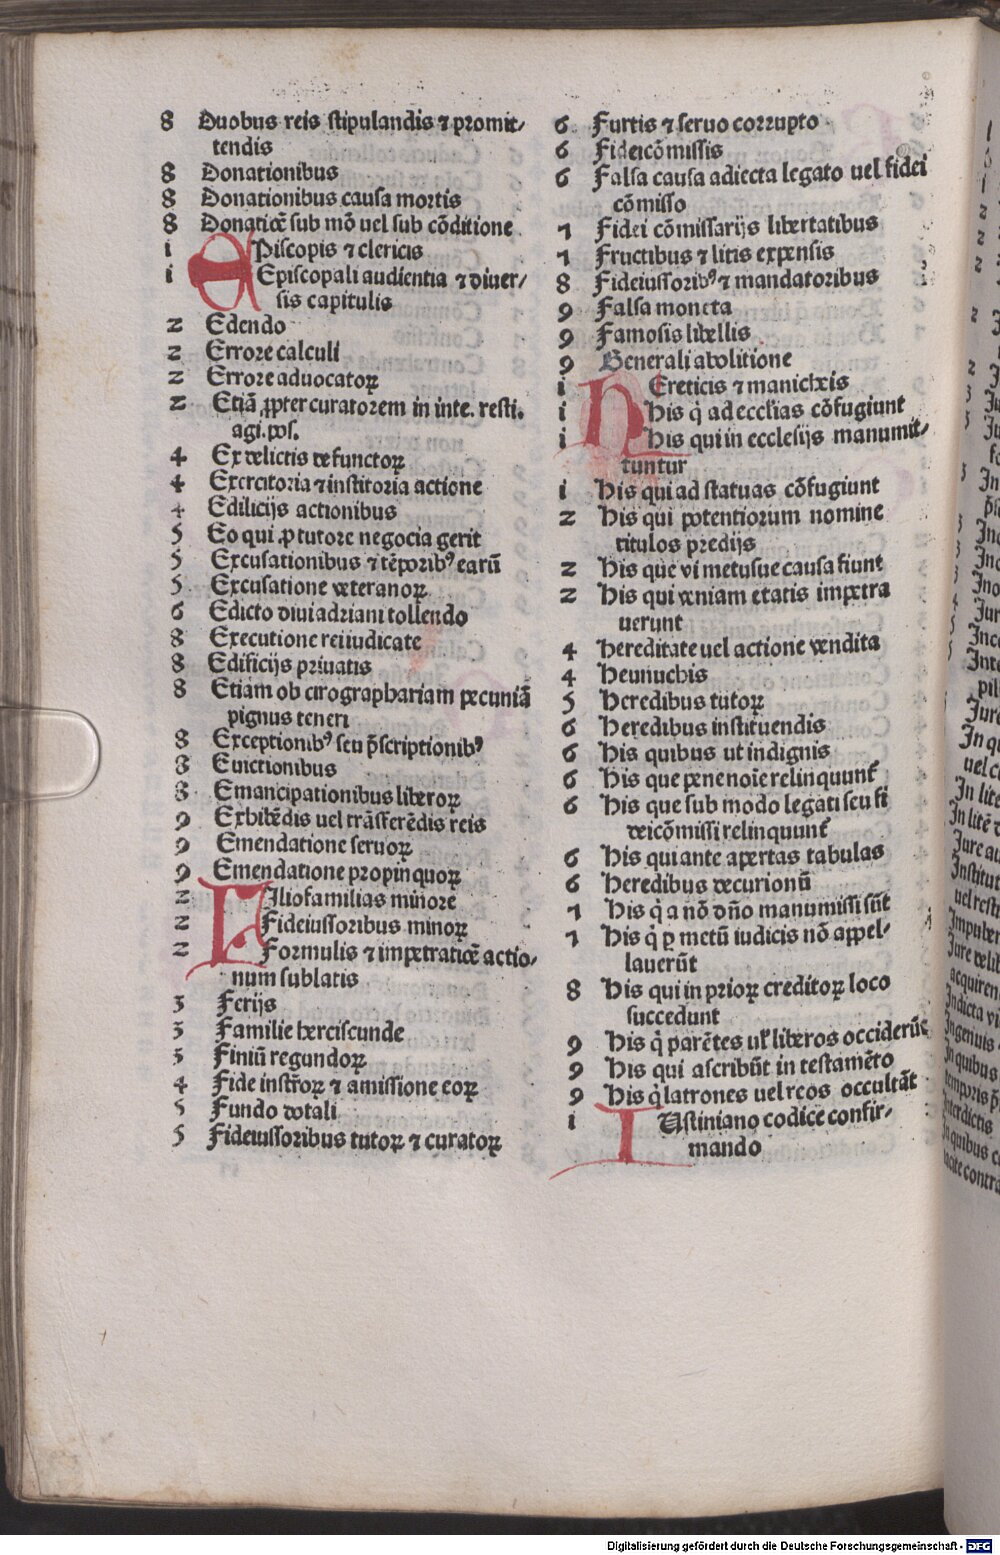 8 Duobus reis stipulandis ⁊ promit⸗
tendis
8 Donationibus
8 Donationibus causa mortis
8 Donatiōe sub mō uel sub cōditione
i EPiscopis ⁊ clericis
i Episcopali audientia ⁊ diuer⸗
sis capitulis
2 Edendo
2 Errore calculi
2 Errore aduocatoꝝ
2 Etiā ꝓpter curatorem in inte. resti.
agi. pos.
4 Ex delictis defunctoꝝ
4 Exercitoria ⁊ institoria actione
4 Edilicijs actionibus
5 Eo qui ꝓ tutore negocia gerit
5 Excusationibus ⁊ tēporibꝰ earū
5 Excusatione veteranoꝝ
6 Edicto diui adriani tollendo
8 Executione rei iudicate
8 Edificijs priuatis
8 Etiam ob cirographariam pecuniā
pignus teneri
8 Exceptionibꝰ seu p̄scriptionibꝰ
8 Euictionibus
8 Emancipationibus liberoꝝ
9 Exhibēdis uel trāsferēdis reis
9 Emendatione seruoꝝ
9 Emendatione propinquoꝝ
2 FIliofamilias minore
2 Fideiussoribus minoꝝ
2 Formulis ⁊ impetratiōe actio⸗
num sublatis
3 Ferijs
3 Familie herciscunde
3 Finiū regundoꝝ
4 Fide instr̄oꝝ ⁊ amissione eoꝝ
5 Fundo dotali
5 Fideiussoribus tutoꝝ ⁊ curatoꝝ
6 Furtis ⁊ seruo corrupto
6 Fideicōmissis
6 Falsa causa adiecta legato uel fidei
cōmisso
7 Fidei cōmissarijs libertatibus
7 Fructibus ⁊ litis expensis
8 Fideiussoribꝰ ⁊ mandatoribus
9 Falsa moneta
9 Famosis libellis
9 Generali abolitione
i HEreticis ⁊ manicheis
i His q̇ ad ecclīas cōfugiunt
i His qui in ecclesijs manumit⸗
tuntur
i His qui ad statuas cōfugiunt
2 His qui potentiorum nomine
titulos predijs
2 His que vi metusue causa fiunt
2 His qui veniam etatis impetra
uerunt
4 Hereditate uel actione vendita
4 Heunuchis
5 Heredibus tutoꝝ
6 Heredibus instituendis
6 His quibus ut indignis
6 His que pene noīe relinquunt̄
6 His que sub modo legati seu fi
deicōmissi relinquunt̄
6 His qui ante apertas tabulas
6 Heredibus decurionū
7 His q̇ a nō dño manumissi sūt
7 His q̇ ꝑ metū iudicis nō appel⸗
lauerūt
8 His qui in prioꝝ creditoꝝ loco
succedunt
9 His q̇ parētes ul̓ liberos occiderūt
9 His qui ascribūt in testamēto
9 His q̇ latrones uel reos occultāt
i IUstiniano codice confir⸗
mando
Digitalisierung gefördert durch die Deutsche Forschungsgemeinschaft - DFG